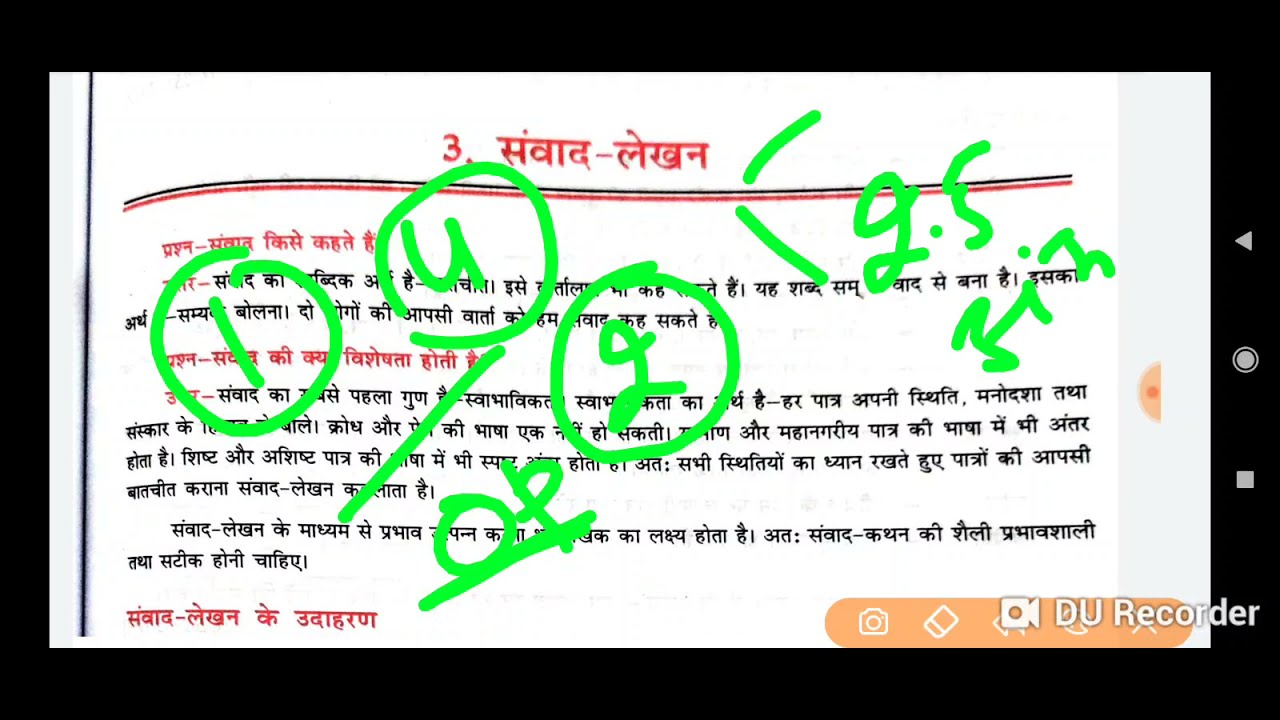 3. संवाद-लेखन
प्रश्न-संवाद किसे कहते हैं
संवाद का अर्थ है- इसे भी कह सकते हैं। यह शब्द सम् वाद से बना है। इसका
अर्थ -सम्यक बोलना। दो लोगों की आपसी वार्ता को हम संवाद कह सकते हैं
प्रश्न-संवाद की क्या विशेषता होती है
उत्तर-संवाद का सबसे पहला गुण है-स्वाभाविकता। स्वाभाविकता का अर्थ है-हर पात्र अपनी स्थिति, मनोदशा तथा
संस्कार के बोले। क्रोध और की भाषा एक नहीं हो सकती। और महानगरीय पात्र की भाषा में भी अंतर
होता है। शिष्ट और अशिष्ट पात्र की भाषा में भी स्पष्ट अंतर होता है। अतः सभी स्थितियों का ध्यान रखते हुए पात्रों की आपसी
बातचीत कराना संवाद-लेखन कहलाता है।
संवाद-लेखन के माध्यम से प्रभाव उत्पन्न करना भी लेखक का लक्ष्य होता है। अतः संवाद-कथन की शैली प्रभावशाली
तथा सटीक होनी चाहिए।
संवाद-लेखन के उदाहरण
DU Recorder